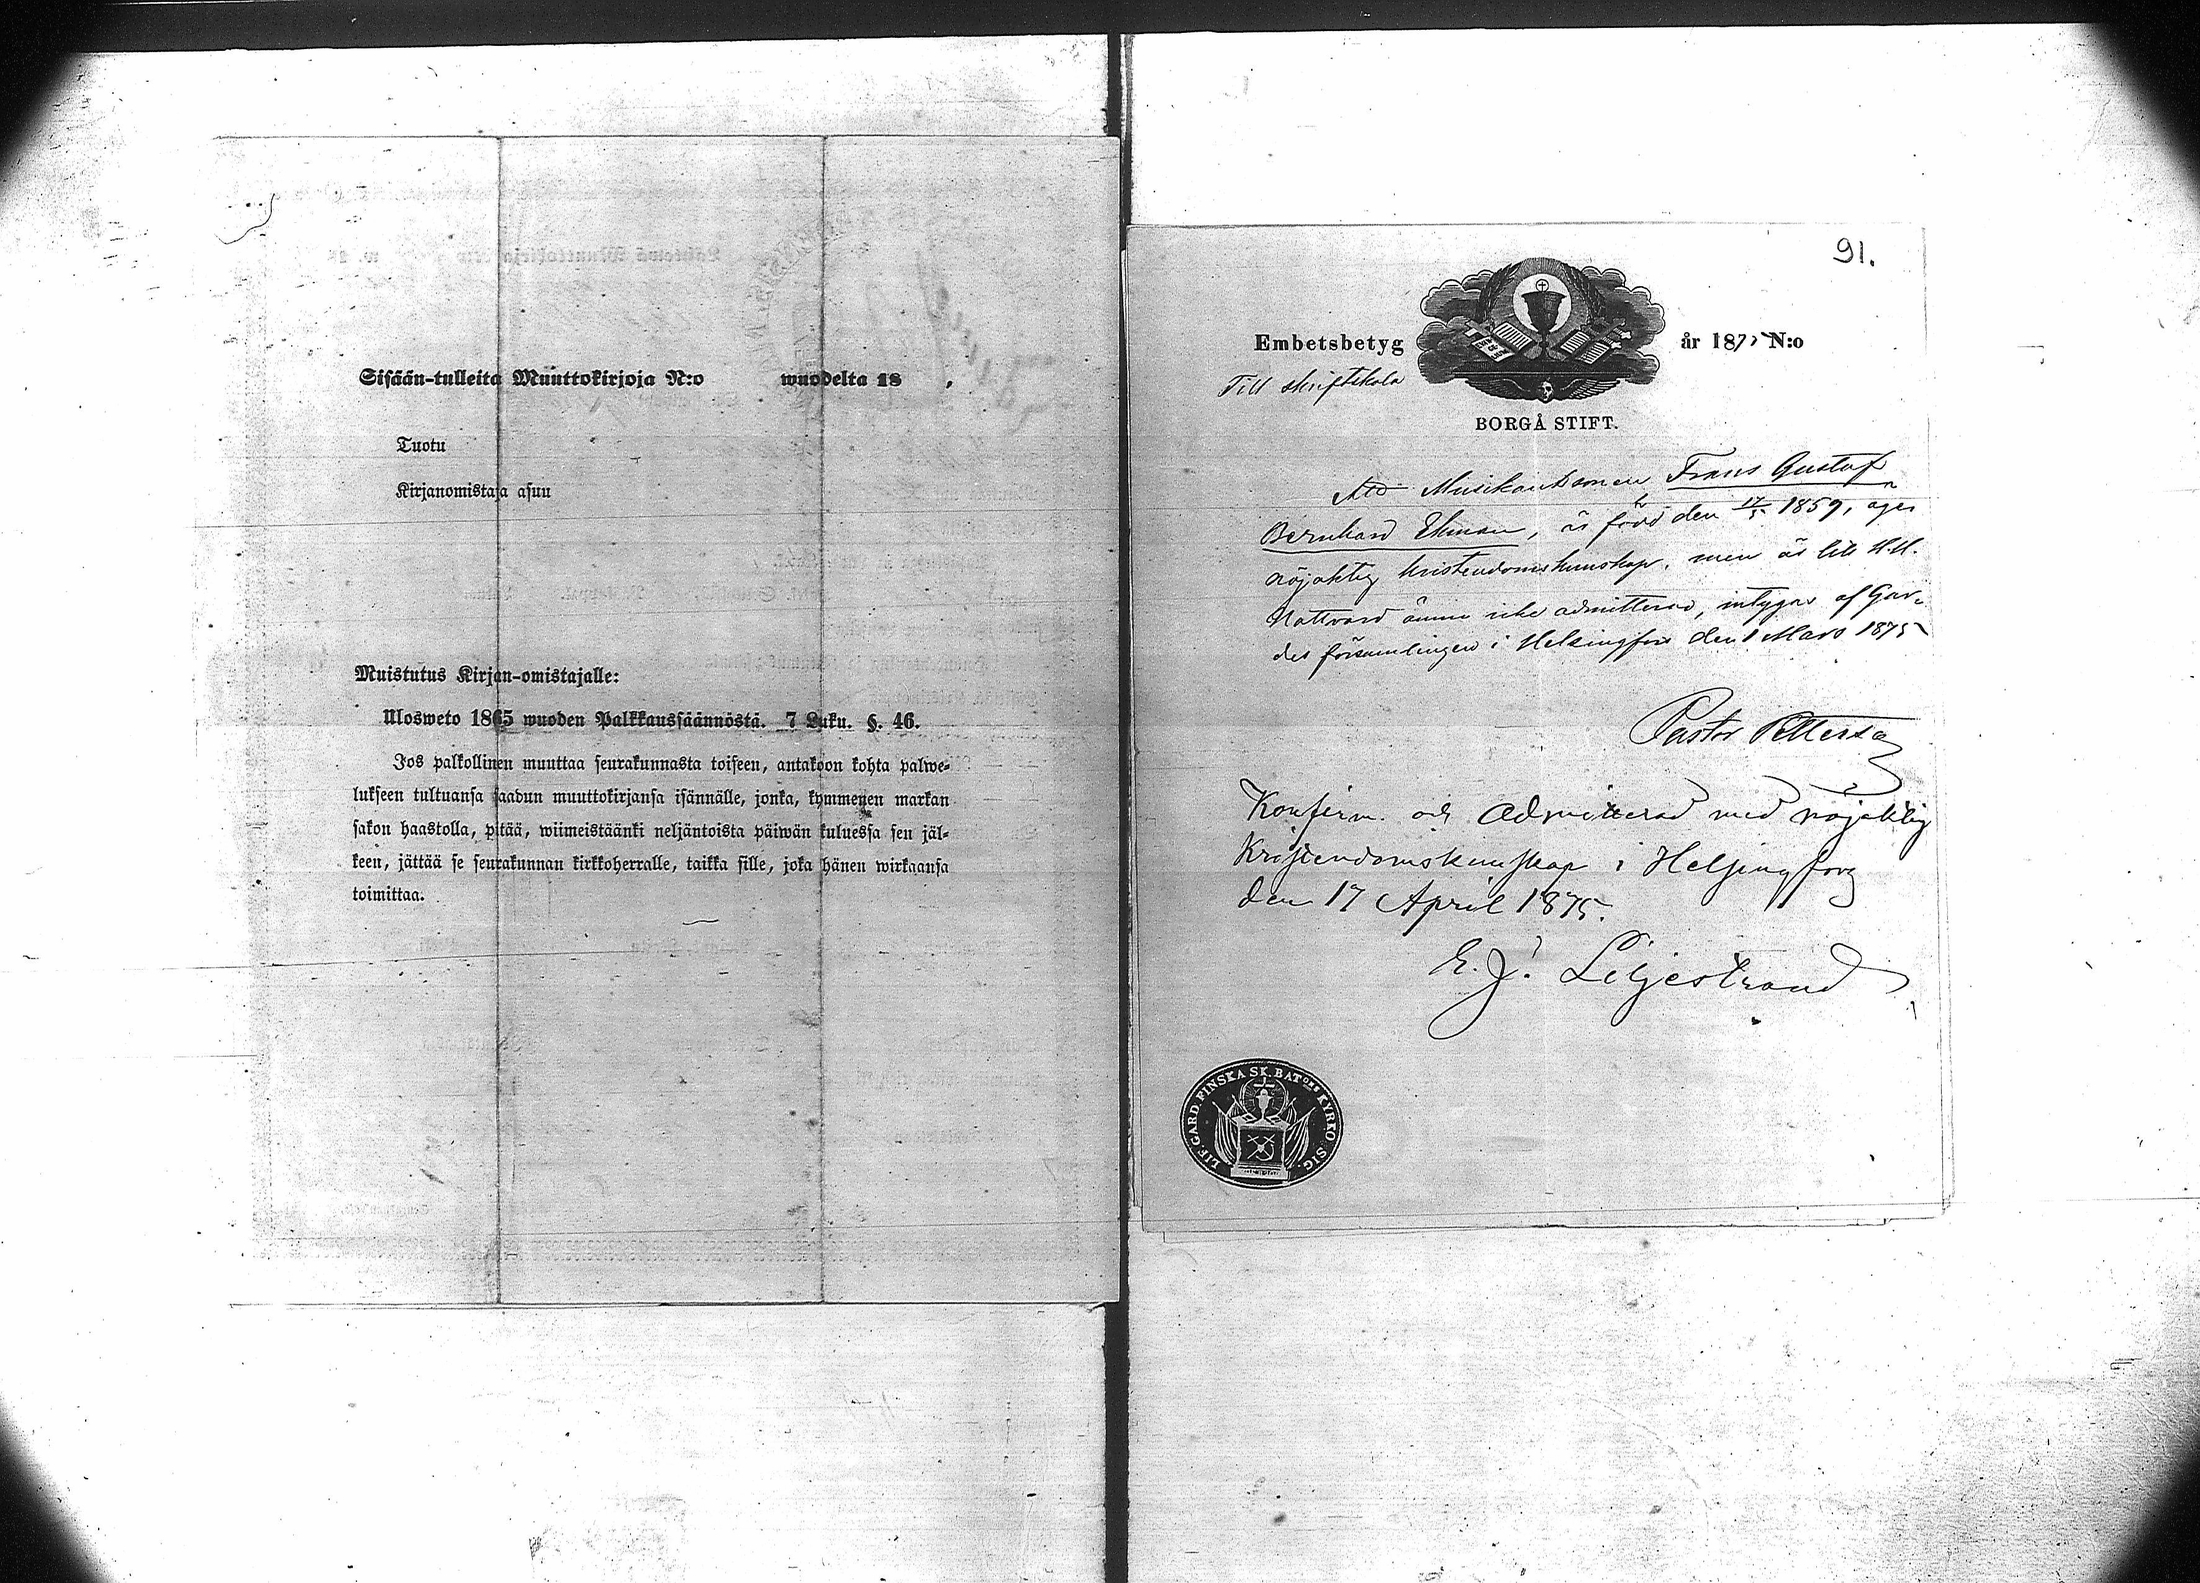 Sisään-tulleita Muuttokirjoja N:o wuodelta 18 .
Tuotu
Kirjanomistaja asuu
Muistutus Kirjan-omistajalle:
Ulosweto 1865 wuoden Palkkaussäännöstä. 7 Luku. §. 46.
Jos palkollinen muuttaa seurakunnasta toiseen, antakoon kohta palwe-
lukseen tultuansa saadun muuttokirjansa isännälle, jonka, kymmenen markan
sakon haastolla, pitää, wiimeistäänki neljäntoista päiwän kuluessa sen jäl-
keen, jättää se seurakunnan kirkkoherralle, taikka sille, joka hänen wirkaansa
toimittaa.
91.
Embetsbetyg år 1875 N:o
Till skriftskola
BORGÅ STIFT.
Att Musikantsonen Frans Gustaf
Bernhard Ekman, är född den 17/5 1859, eger
nöjaktig kristendomskunskap, men är till H.H.
Nattvard ännu icke admitterad, intygas af Gar-
des församlingen i Helsingfors den 1 Mars 1875
Pastor Petterson
Konfirm. och admitterad med nöjaktig
Kristendomskunskap i Helsingfors
den 17 April 1875.
E. J. Liljestrand
LIF. GARD. FINSKA SK. BATons KYRKO. SIG.